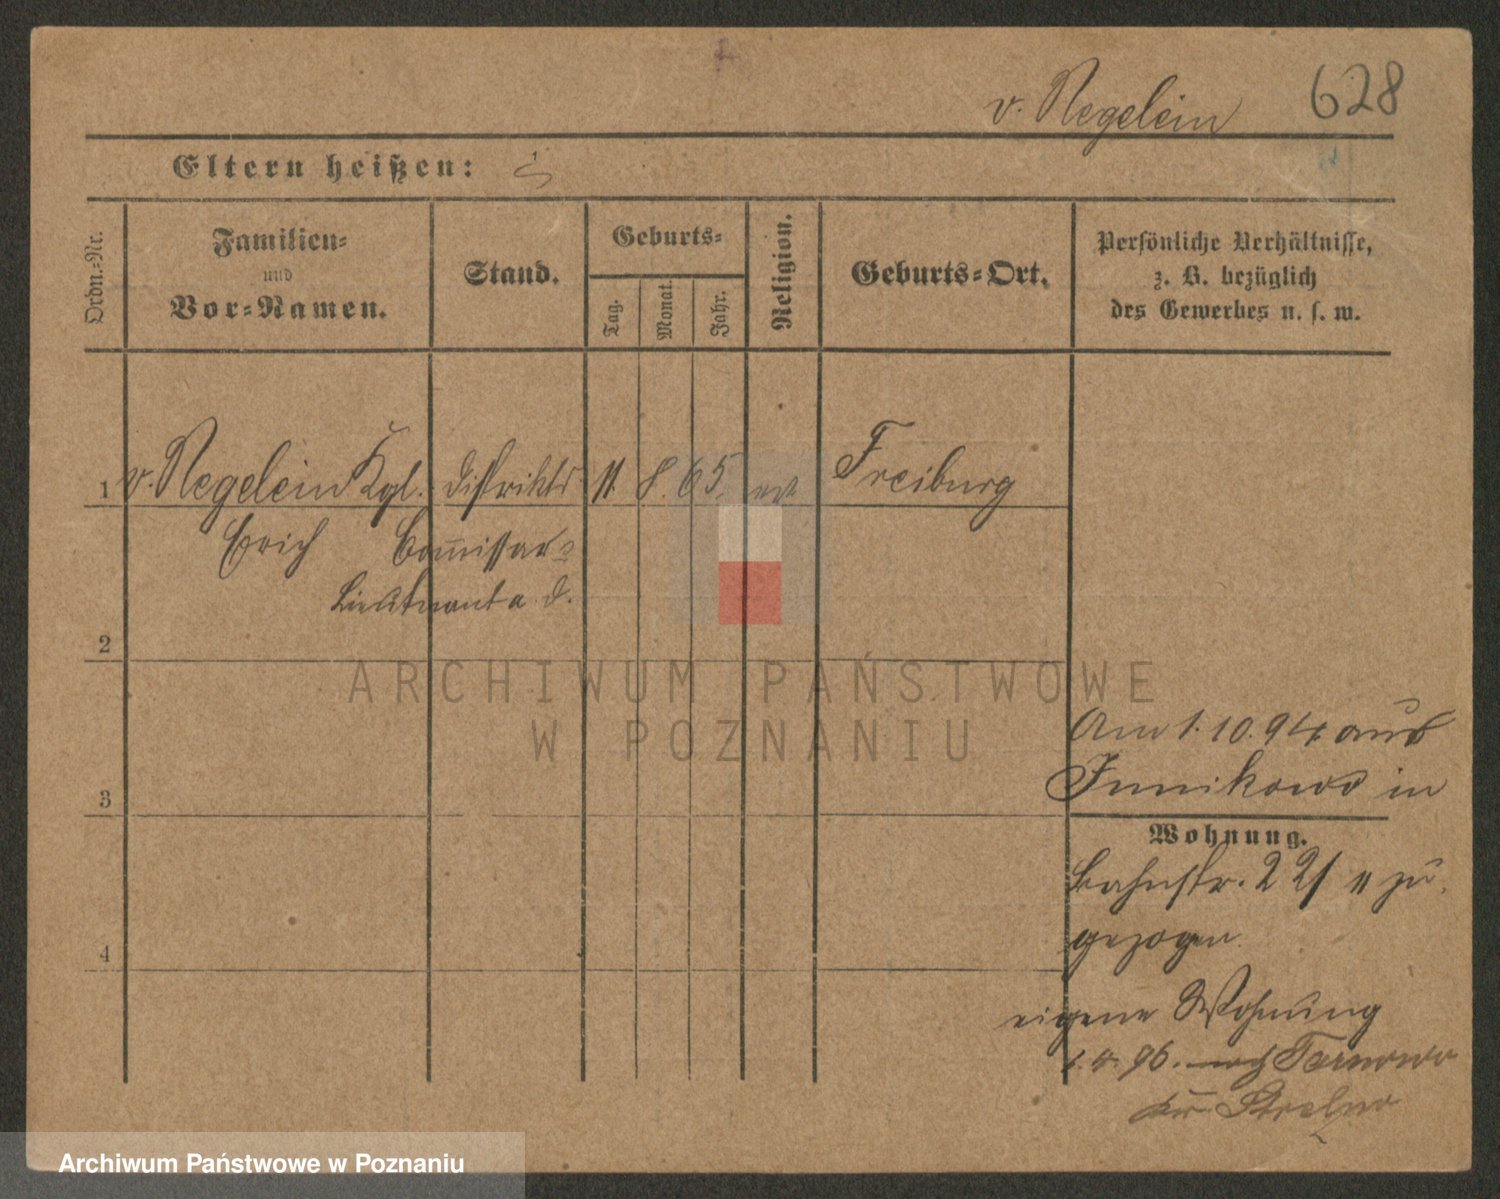 v. Negelein 628
Eltern heißen:
Ordn.=Nr.
Familien=
und
Vor=Namen.
Stand.
Geburts=
Tag.
Monat.
Jahr.
Religion.
Geburts=Ort.
Persönliche Verhältnisse,
z. B. bezüglich
des Gewerbes u. s. w.
1 v. Negelein Kgl. Distrikts 11. 8. 65. ev Freiburg
Erich Com̅issar
Lieutnant a. D.
2
ARCHIWUM PAŃSTWOWE
W POZNANIU
Am 1. 10. 94 aus
Junikowo in
3
Wohnung.
Bahnstr. 22/ II zu
4 gezogen.
eigene Wohnung
1. 4. 96. nach Tarnowo
Kr. Strelno
Archiwum Państwowe w Poznaniu